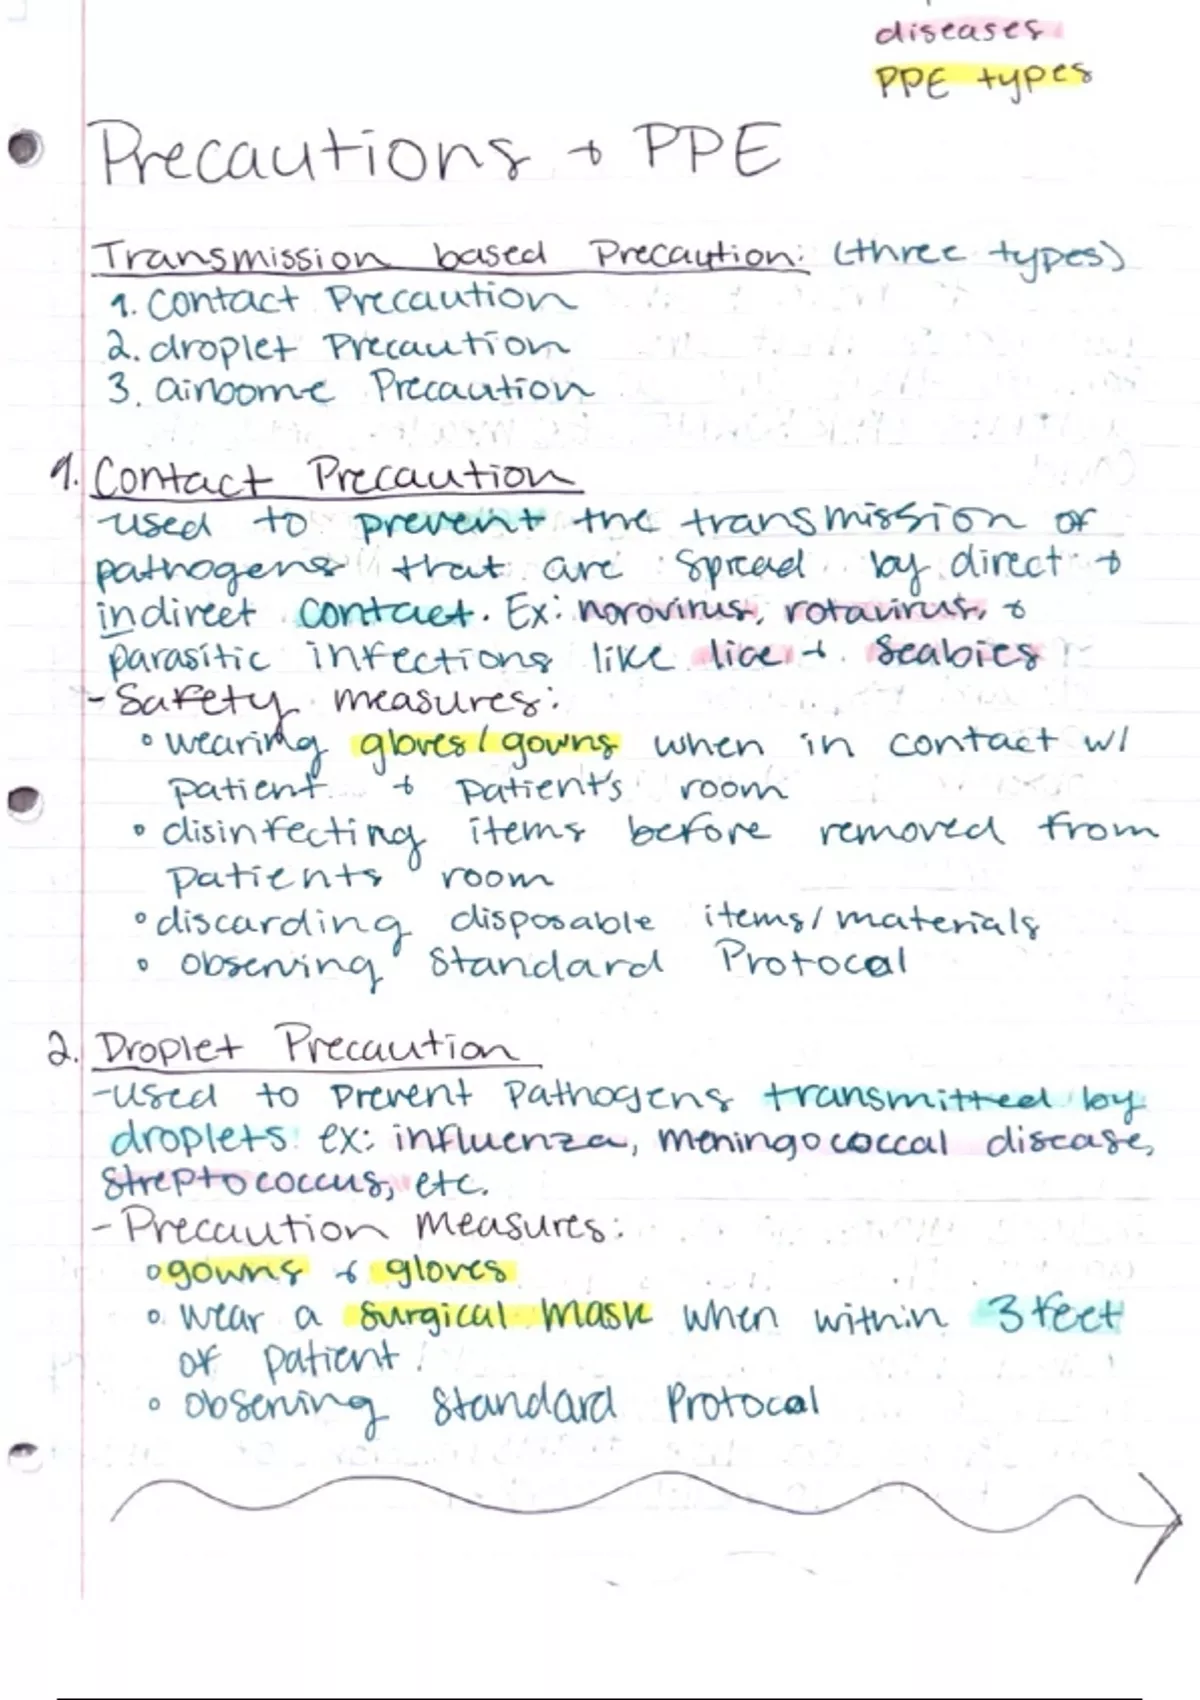 diseases
PPE types
Precautions + PPE
Transmission based Precaution: (three types)
1. Contact Precaution
2. droplet Precaution
3. airborne Precaution
1. Contact Precaution
-used to prevent the transmission of
pathogens that are spread by direct +
indirect contact. Ex: norovirus, rotavirus, &
parasitic infections like lice + Scabies
- Safety measures:
◦ wearing gloves/gowns when in contact w/
patient + patient's room
◦ disinfecting items before removed from
patients room
◦ discarding disposable items/materials
◦ observing Standard Protocal
2. Droplet Precaution
-used to prevent pathogens transmitted by
droplets. ex: influenza, meningococcal disease,
Streptococcus, etc.
- Precaution measures:
◦ gowns & gloves
◦ wear a surgical mask when within 3 feet
of patient.
◦ observing Standard Protocal